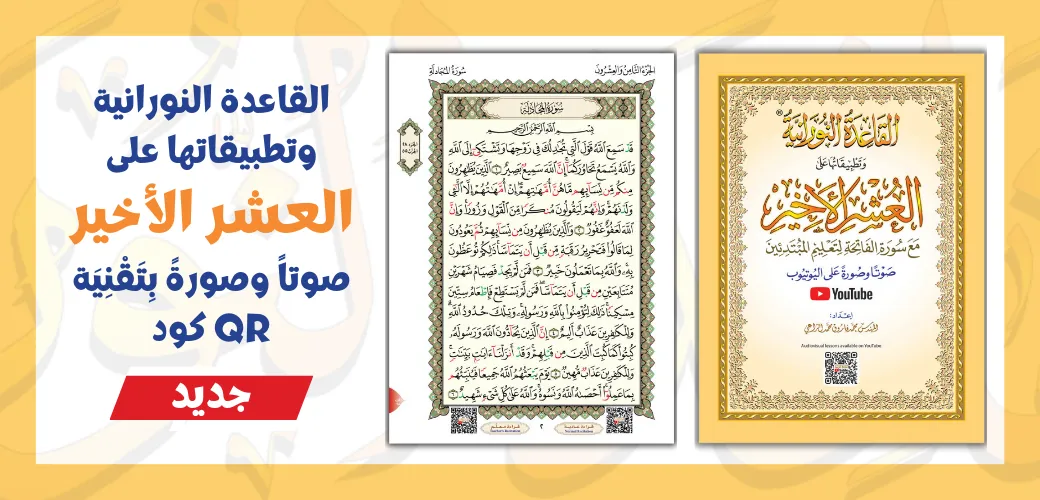 القاعدة النورانية
وتطبيقاتها على
العشر الأخير
صوتاً وصورةً بِتَقْنِيَة
QR كود
جديد
سُورَةُ المُجَادلَةِ
الجُزءُ الثَّامِنُ وَالعِشْرُونَ
سُورَةُ المُجَادلَةِ
بِسْمِ اللَّهِ الرَّحْمَٰنِ الرَّحِيمِ
قَدْ سَمِعَ اللَّهُ قَوْلَ الَّتِي تُجَادِلُكَ فِي زَوْجِهَا وَتَشْتَكِي إِلَى اللَّهِ
وَاللَّهُ يَسْمَعُ تَحَاوُرَكُمَا إِنَّ اللَّهَ سَمِيعٌ بَصِيرٌ ١ الَّذِينَ يُظَاهِرُونَ
مِنكُم مِّن نِّسَائِهِم مَّا هُنَّ أُمَّهَاتِهِمْ إِنْ أُمَّهَاتُهُمْ إِلَّا الَّتِي
وَلَدْنَهُمْ وَإِنَّهُمْ لَيَقُولُونَ مُنكَرًا مِّنَ الْقَوْلِ وَزُورًا وَإِنَّ
اللَّهَ لَعَفُوٌّ غَفُورٌ ٢ وَالَّذِينَ يُظَاهِرُونَ مِن نِّسَائِهِمْ ثُمَّ يَعُودُونَ
لِمَا قَالُوا فَتَحْرِيرُ رَقَبَةٍ مِّن قَبْلِ أَن يَتَمَاسَّا ذَٰلِكُمْ تُوعَظُونَ
بِهِ وَاللَّهُ بِمَا تَعْمَلُونَ خَبِيرٌ ٣ فَمَن لَّمْ يَجِدْ فَصِيَامُ شَهْرَيْنِ
مُتَتَابِعَيْنِ مِن قَبْلِ أَن يَتَمَاسَّا فَمَن لَّمْ يَسْتَطِعْ فَإِطْعَامُ سِتِّينَ
مِسْكِينًا ذَٰلِكَ لِتُؤْمِنُوا بِاللَّهِ وَرَسُولِهِ وَتِلْكَ حُدُودُ اللَّهِ
وَلِلْكَافِرِينَ عَذَابٌ أَلِيمٌ ٤ إِنَّ الَّذِينَ يُحَادُّونَ اللَّهَ وَرَسُولَهُ
كُبِتُوا كَمَا كُبِتَ الَّذِينَ مِن قَبْلِهِمْ وَقَدْ أَنزَلْنَا آيَاتٍ بَيِّنَاتٍ
وَلِلْكَافِرِينَ عَذَابٌ مُّهِينٌ ٥ يَوْمَ يَبْعَثُهُمُ اللَّهُ جَمِيعًا فَيُنَبِّئُهُم
بِمَا عَمِلُوا أَحْصَاهُ اللَّهُ وَنَسُوهُ وَاللَّهُ عَلَىٰ كُلِّ شَيْءٍ شَهِيدٌ ٦
قراءة معلم
٢
قراءة عادية
القَاعِدَةُ النُّورَانِيَّة
وَتَطْبِيقَاتُهَا عَلَى
العُشْرِ الأَخِير
مَعَ سُورَةِ الفَاتِحَةِ لِتَعْلِيمِ المُبْتَدِئِينَ
صَوْتًا وَصُورَةً عَلَى اليُوتيُوب
YouTube
إعْدَاد:
Audiovisual lessons available on YouTube